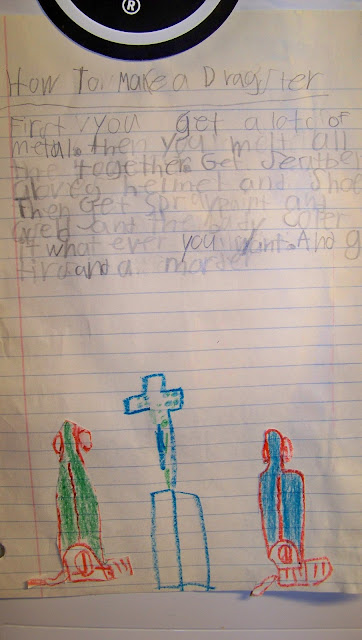 ®
How To Make a Dragster
First you get a lot of
metal. then you melt all
the together. Get Seatbel
gloves helmet and Shoe
Then Get Spraypaint and
and the Body Coler
it what ever you want. And g
tire and a